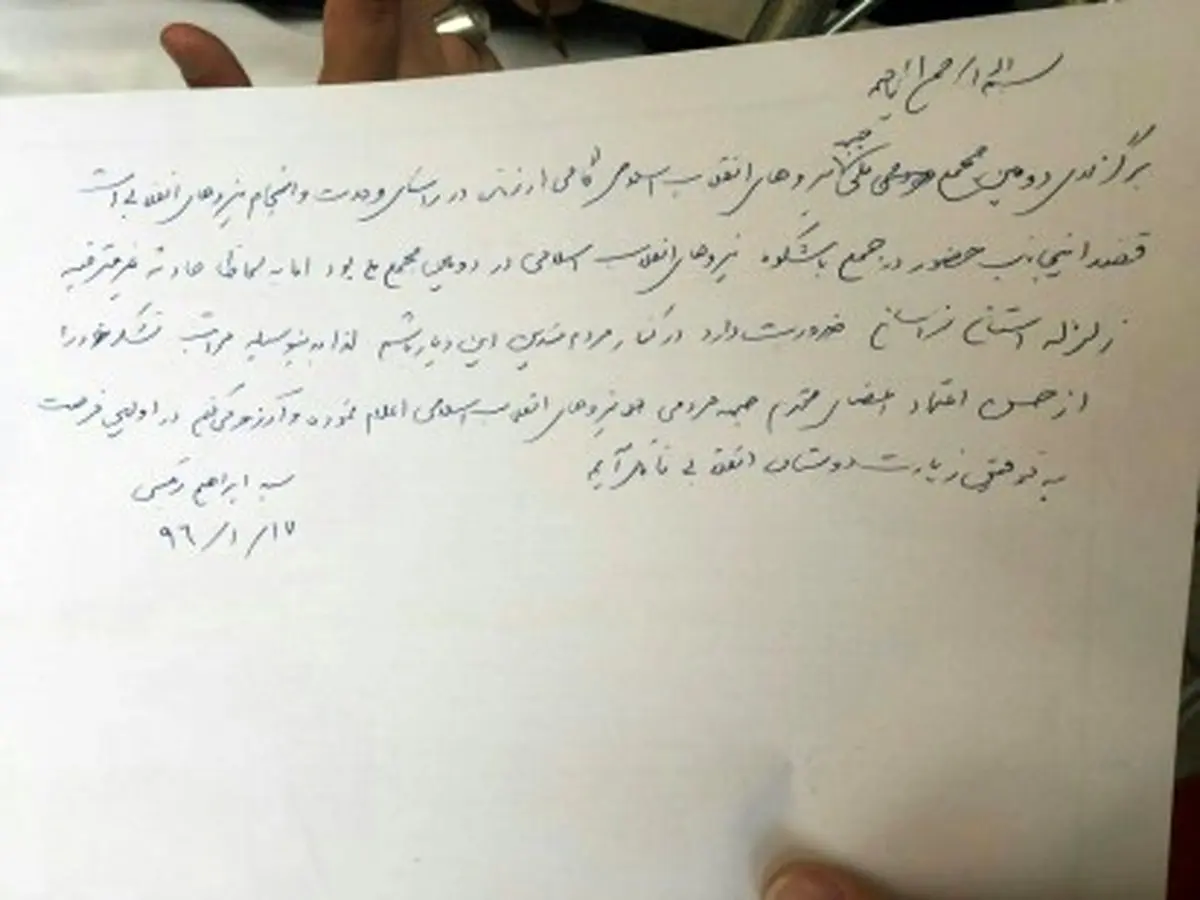 بسم الله الرحمن الرحیم
جبهه
برگزاری دومین مجمع ملی نیروهای انقلاب اسلامی گامی ارزنده در راستای وحدت و انسجام نیروهای انقلابی است
قصد اینجانب حضور در جمع باشکوه نیروهای انقلاب اسلامی در دومین مجمع ملی بود اما به لحاظ حادثه غیرمترقبه
زلزله استان خراسان ضرورت دارد در کنار مردم متدین این دیار باشم لذا بدینوسیله مراتب تشکر خود را
از حسن اعتماد اعضای محترم جبهه مردمی نیروهای انقلاب اسلامی اعلام نموده و آرزو می‌کنم در اولین فرصت
به توفیق زیارت دوستان انقلابی نائل آیم
سید ابراهیم رئیسی
۹۶/۱/۱۷